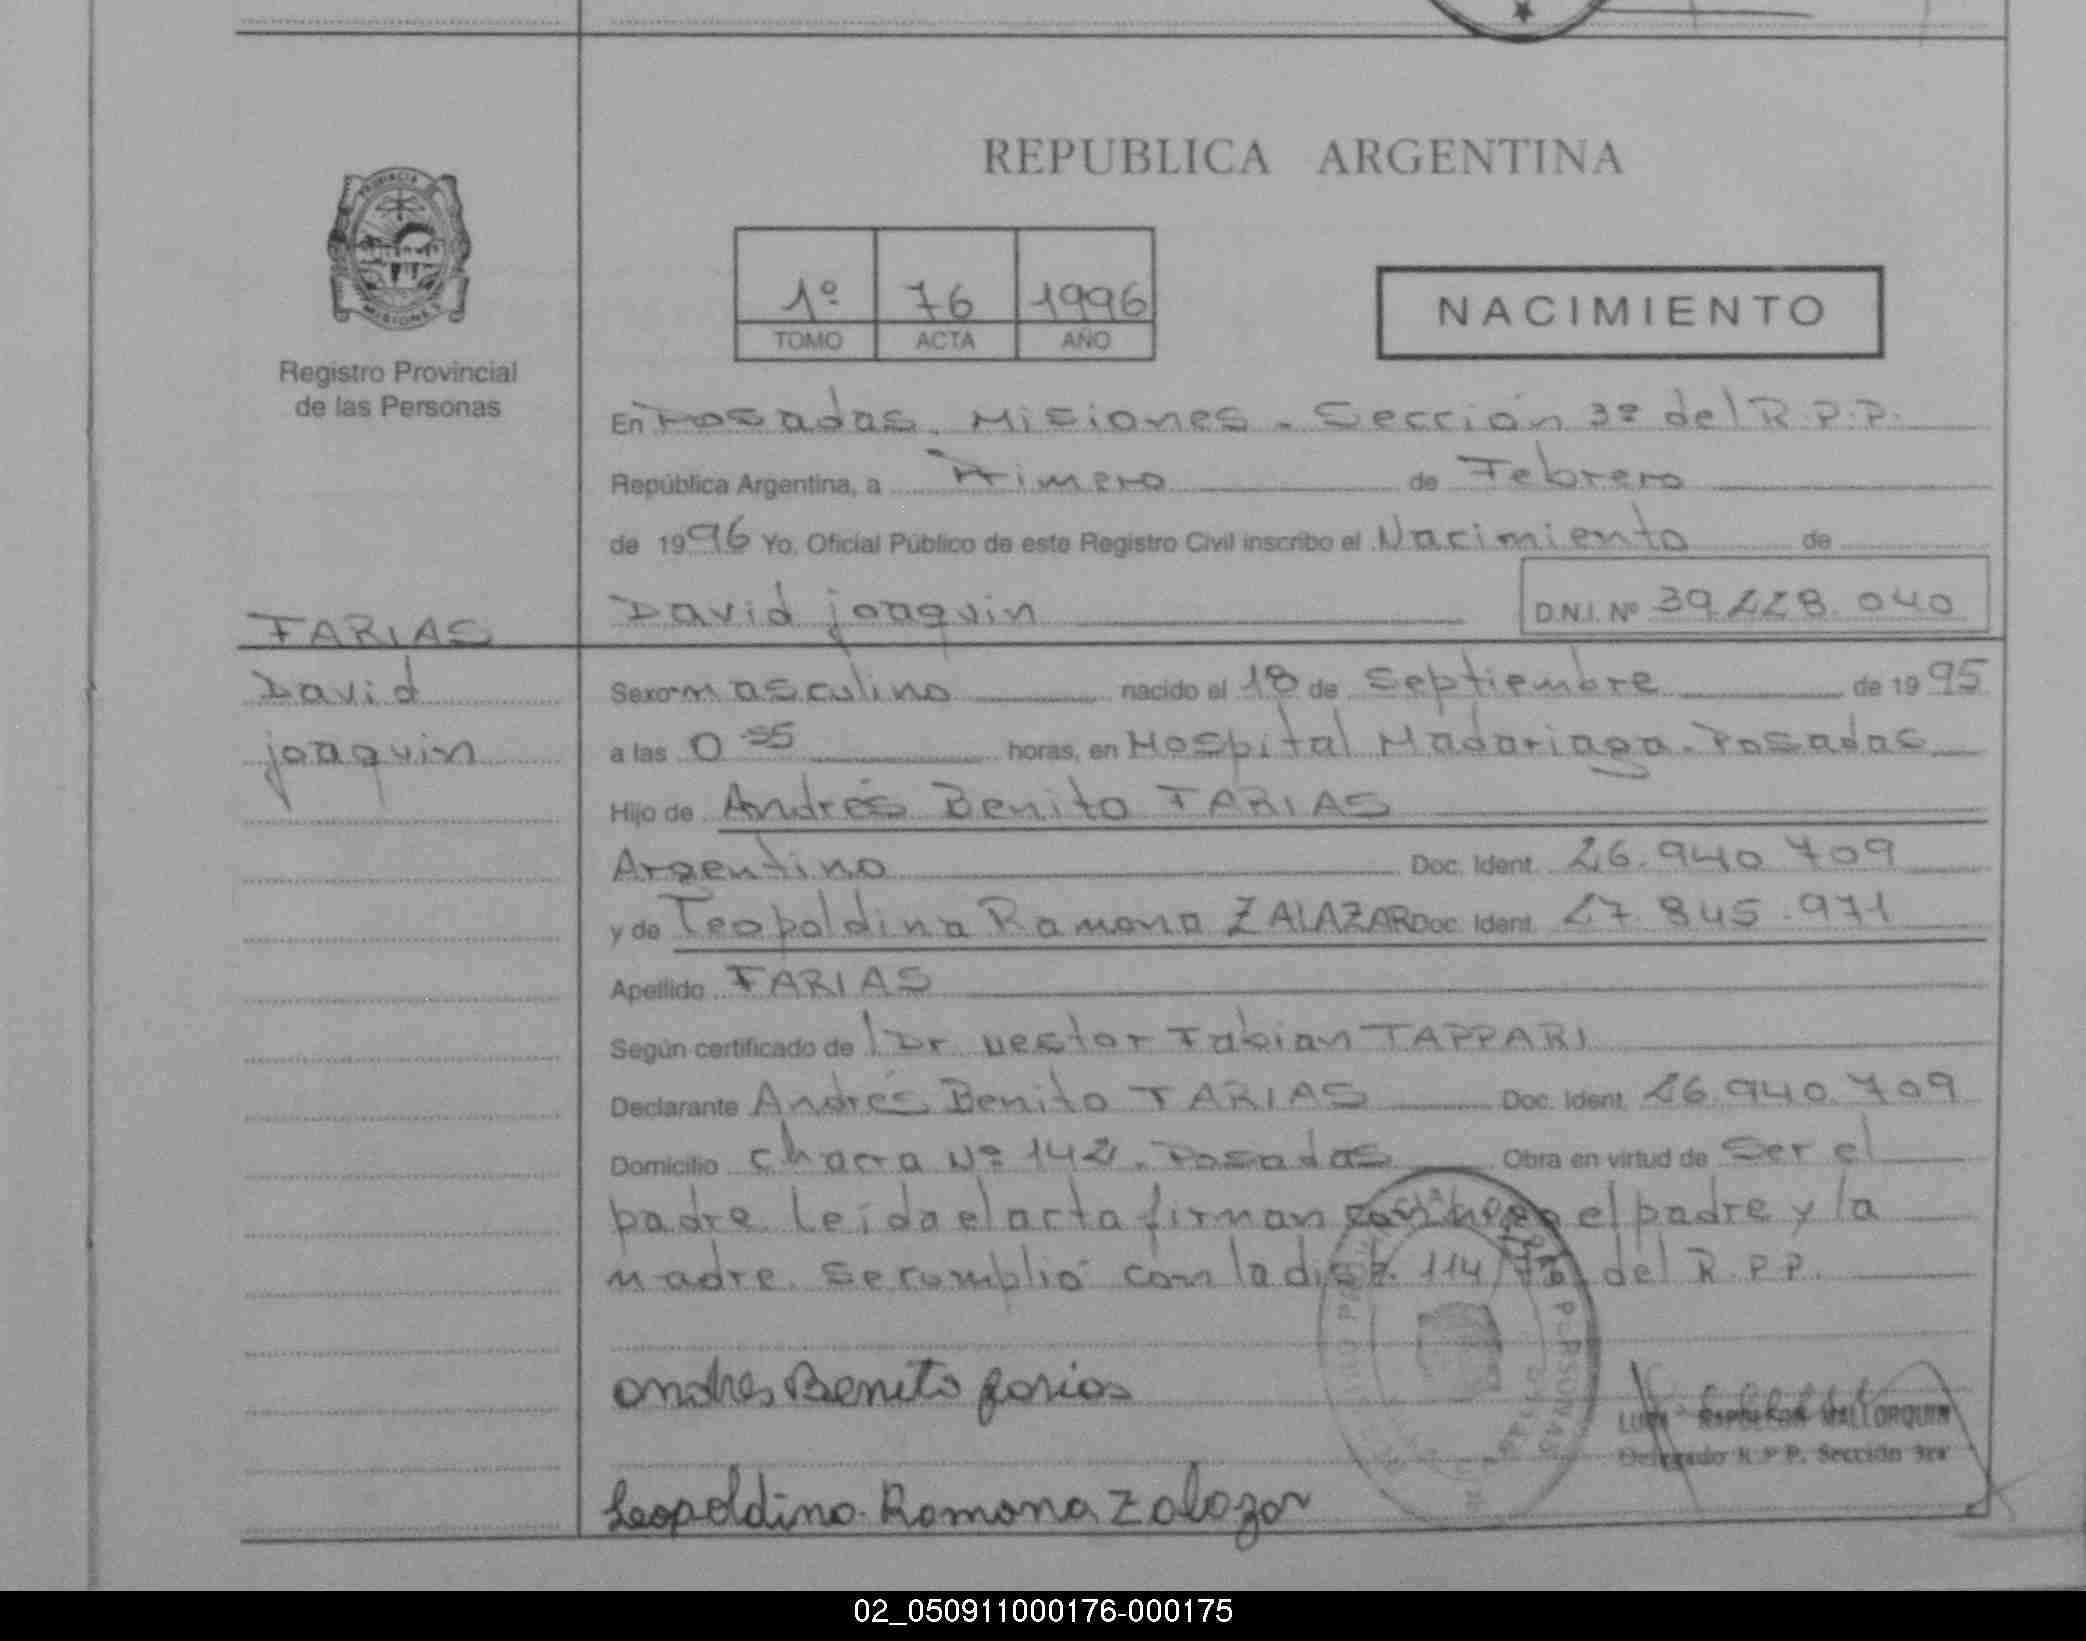 REPUBLICA ARGENTINA
PROVINCIA
MISIONES
Registro Provincial
de las Personas
1º 76 1996
TOMO ACTA AÑO
NACIMIENTO
En Posadas. Misiones. Sección 3º del R.P.P.
República Argentina, a Primero de Febrero
de 1996 Yo, Oficial Público de este Registro Civil inscribo el Nacimiento de
David joaquin D.N.I. Nº 39.228.040
FARIAS
David
joaquin
Sexo masculino nacido el 18 de Septiembre de 1995
a las 0 35 horas, en Hospital Madariaga. Posadas
Hijo de Andrés Benito FARIAS
Argentino Doc. Ident. 26.940.709
y de Leopoldina Ramona ZALAZAR Doc. Ident. 27.845.971
Apellido FARIAS
Según certificado de l Dr. Nestor Fabian TAPPARI
Declarante Andrés Benito FARIAS Doc. Ident. 26.940.709
Domicilio Chacra Nº 142. Posadas Obra en virtud de Ser el
padre. Leída el acta firman el padre y la
madre. Se cumplió con la disp. 114 del R.P.P.
Andres Benito Farias
MALLORQUIN
Delegado R.P.P. Sección 3ra
Leopoldina Ramona Zalazar
02_050911000176-000175